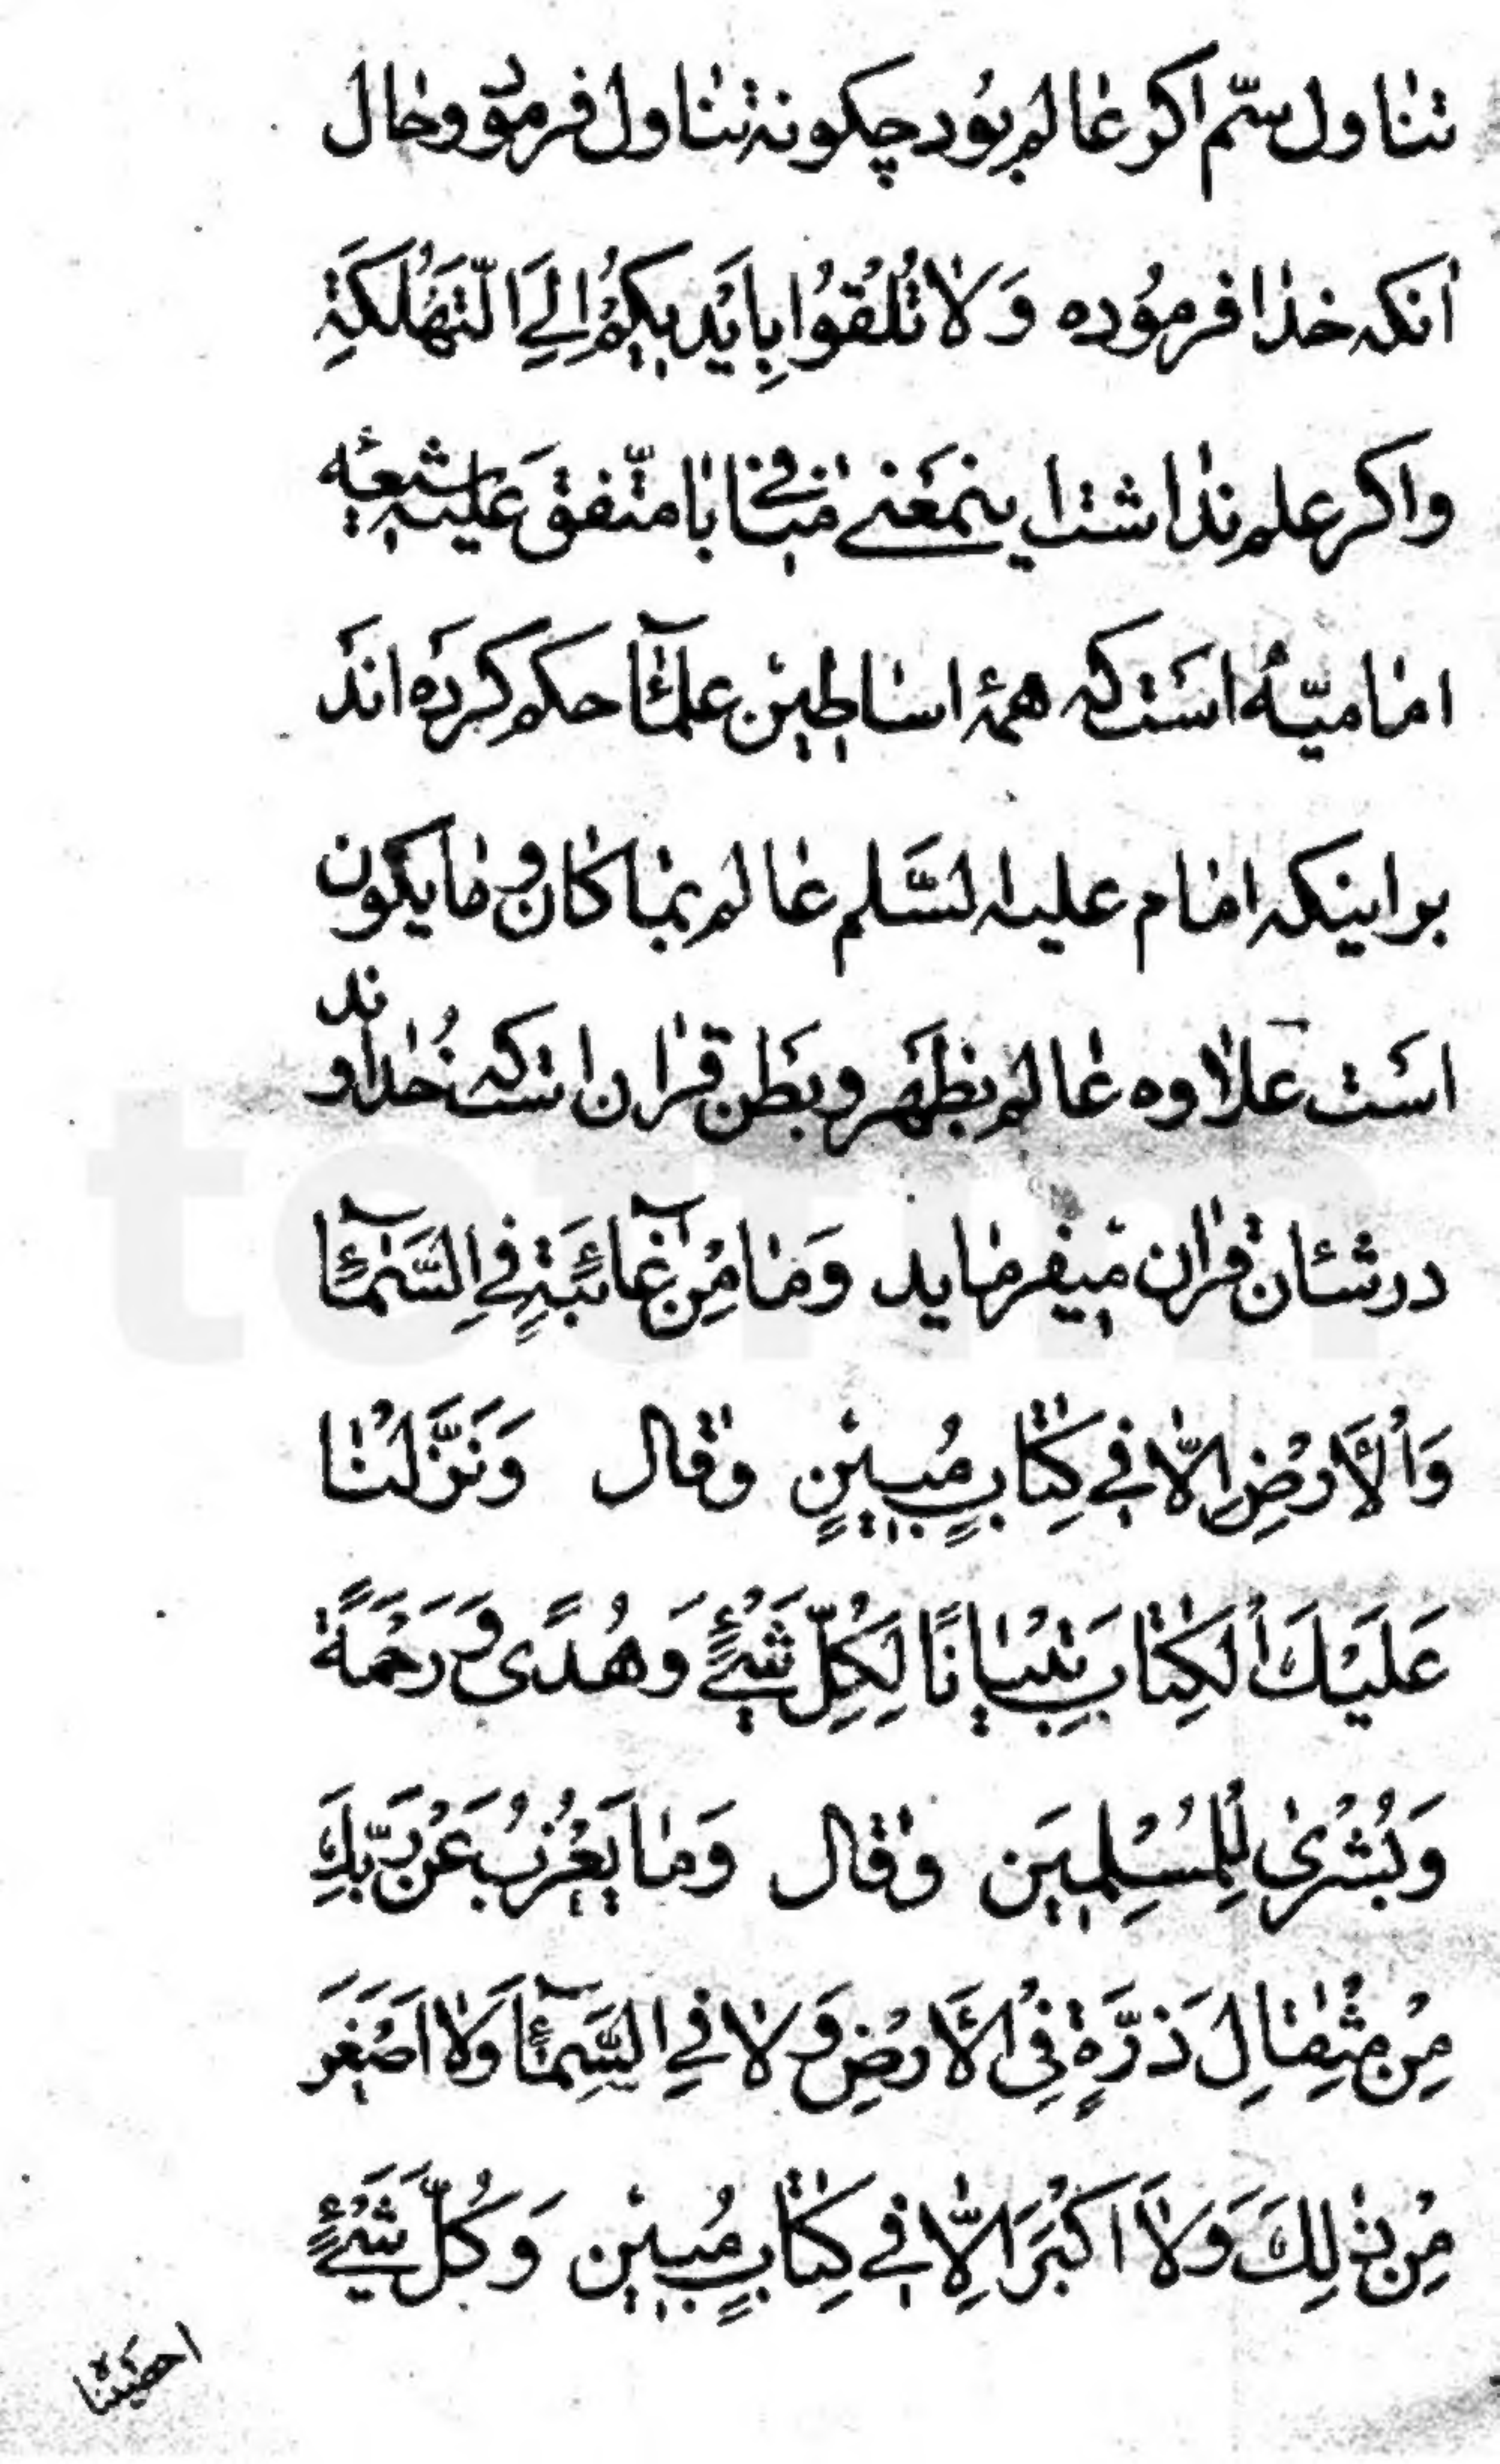 تناول سمّ اکر عالم بود چکونه تناول فرمود و حال
انکه خدا فرموده وَلا تُلْقُوا بِاَیْدیکُمْ اِلَی التَّهْلُکَةِ
و اکر علم نداشت اینمعنی منافی با متّفق علیه شیعه
امامیّه است که همهٔ اساطین علمآء حکم کرده اند
بر اینکه امام علیه السَّلم عالم بما کان و ما یکون
است علاوه عالم بظهر و بطن قران است که خداوند
در شان قران میفرماید وَمَا مِنْ غآئِبَةٍ فِی السَّمآءِ
وَالْاَرْضِ اِلّا فی کِتابٍ مُبینٍ وقال وَنَزَّلْنا
عَلَیْكَ الْکِتابَ تِبْیانًا لِکُلِّ شَیْءٍ وَهُدًی وَرَحْمَةً
وَبُشْریٰ لِلْمُسْلِمینَ وقال وَما یَعْزُبُ عَنْ رَبِّكَ
مِنْ مِثْقالِ ذَرَّةٍ فِی الْاَرْضِ وَلا فِی السَّمآءِ وَلا اَصْغَرَ
مِنْ ذٰلِكَ وَلا اَکْبَرَ اِلّا فی کِتابٍ مُبین وَکُلَّ شَیْءٍ
احصیناه